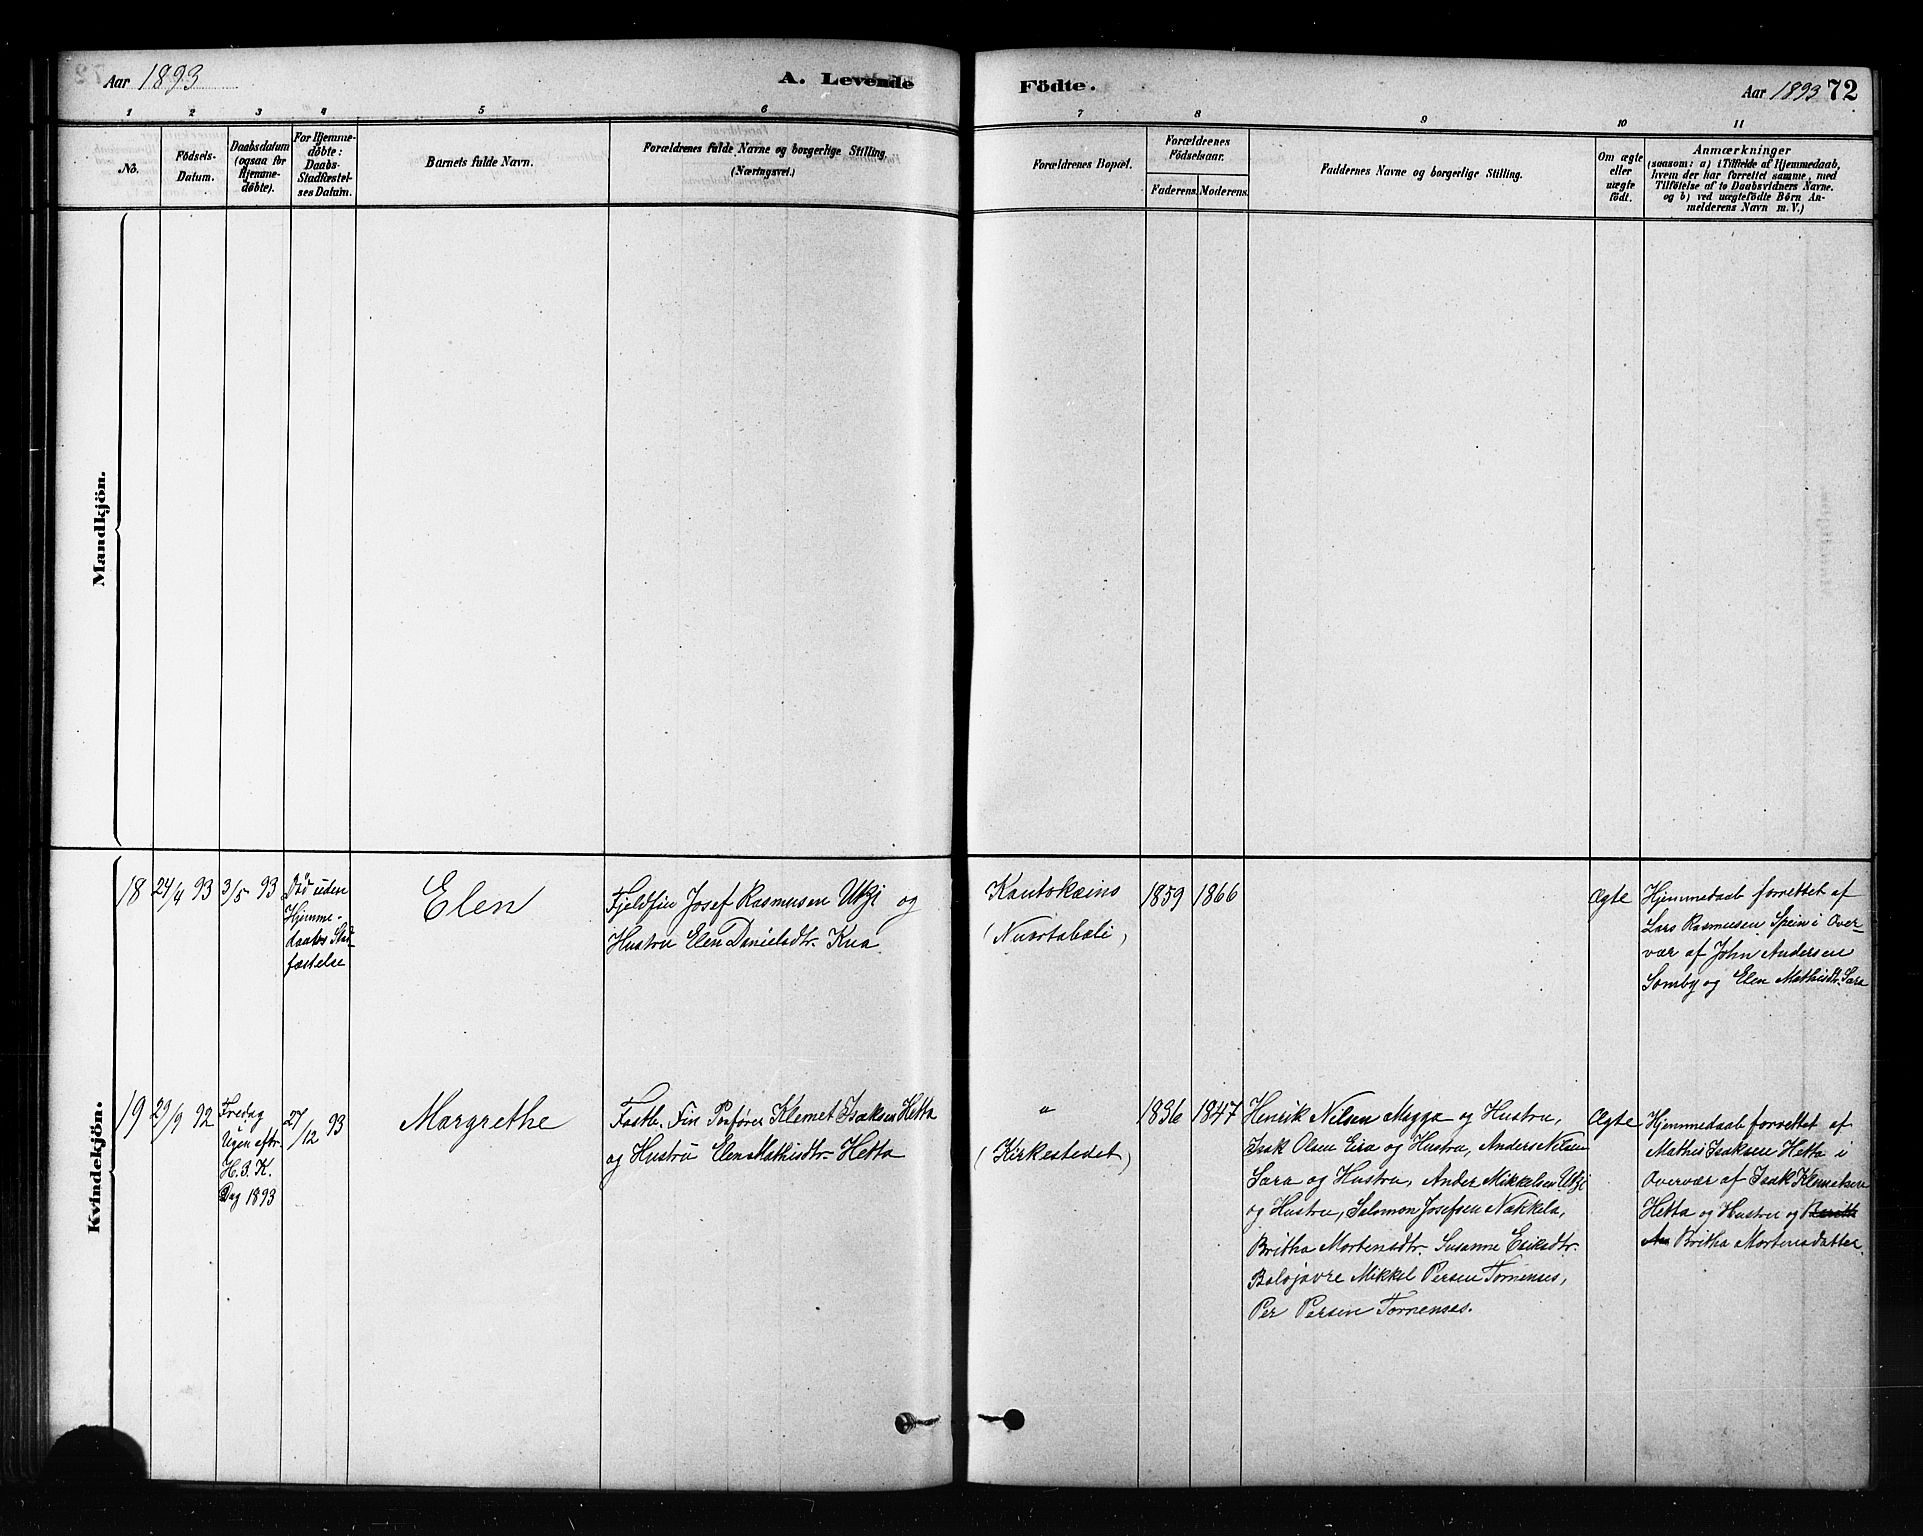 Aar 1893
A. Levende
Födte.
Aar 1893 72
1 2 3 4 5 6 7 8 9 10 11
No.
Fødsels-
Datum.
Daabsdatum
(ogsaa for
Hjemme-
døbte).
For Hjemme-
døbte:
Daabs-
Stadfæstel-
ses Datum.
Barnets fulde Navn.
Forældrenes fulde Navne og borgerlige Stilling.
(Næringsvei.)
Forældrenes Bopæl.
Forældrenes
Fødselsaar.
Faderens. Moderens.
Faddernes Navne og borgerlige Stilling.
Om ægte
eller
uægte
födt.
Anmærkninger
(saasom: a) i Tilfælde af Hjemmedaab,
hvem der har forrettet samme, med
Tilföielse af to Daabsvidners Navne.
og b) ved uægtefödte Börn An-
melderens Navn m. V.)
Mandkjön.
Kvindekjön.
18
24/4 93
3/5 93
Död uden
Hjemme-
daabs Stad-
fæstelse
Elen
Fjeldfin Josef Rasmusen Utzi og
Hustru Elen Danielsdtr. Kua
Kautokeino
(Nuortabeli)
1859
1866
Ægte
Hjemmedaab forrettet af
Lars Rasmusen Spein i Over-
vær af John Andersen
Somby og Elen Mathisdtr. Sara
19
29/9 92
Fredag
Ugen eftr.
H. 3. K.
Dag 1893
27/12 93
Margrethe
Fastb. Fin Klemet Isaksen Hetta
og Hustru Elen Mathisdtr. Hetta
"
(Kirkestedet)
1836
1847
Henrik Nilsen Magga og Hustru,
Isak Olsen Eira og Hustru, Anders Nilsen
Sara og Hustru, Ander Mikkelsen Utzi
og Hustru, Salomon Josefsen Nækkela,
Britha Mortensdtr. Susanne Eriksdtr.
Balojavre Mikkel Persen Tornenses,
Per Persen Tornenses.
Ægte
Hjemmedaab forrettet af
Mathis Isaksen Hetta i
Overvær af Isak Klemetsen
Hetta og Hustru og
Britha Mortensdatter